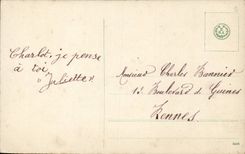 Charlot, je pense
à toi
"Juliette"
Monsieur Charles Bannier
12 Boulevard de Guines
Rennes